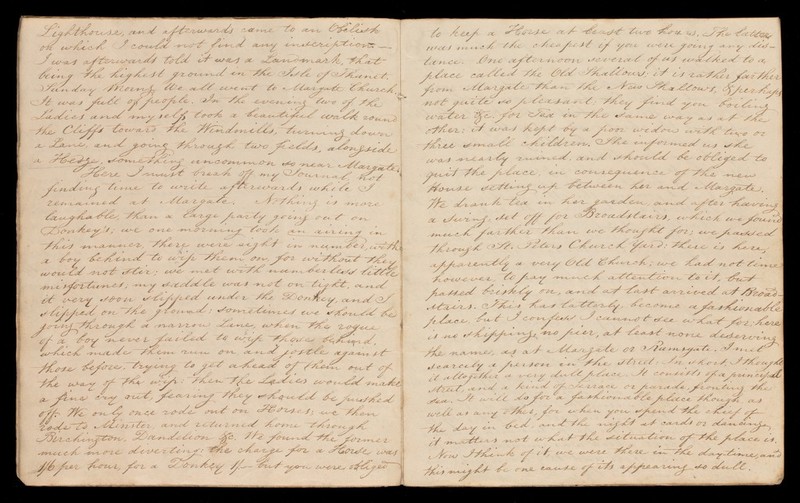 Lighthouse, and afterwards came to an Obelisk
on which I could not find any inscription —
I was afterwards told it was a Landmark, that
being the highest ground in the Isle of Thanet.
Sunday Morng. We all went to Margate Church.
It was full of people. In the evening two of the
Ladies and myself took a beautiful walk round
the Cliffs toward the Windmills, turning down
a Lane, and going through two fields, alongside
a Hedge, something uncommon so near Margate.
Here I must break off my Journal, not
finding time to write afterwards while I
remained at Margate. Nothing is more
laughable, than a large party going out on
Donkey's, we one morning took an airing in
this manner, there were eight in number, with
a boy behind to wip them on, for without they
would not stir; we met with numberless little
misfortunes; my saddle was not on tight, and
it very soon slipped under the Donkey, and I
slipped on the ground: sometimes we should be
going through a narrow Lane, when the rogue
of a boy never failed to wip those behind,
which made them run on and jostle against
those before, trying to get ahead of them out of
the way of the wip: then the Ladies would make
a fine cry out, fearing they should be pushed
off. We only once rode out on Horses; we then
rode to Minster and returned home through
Birchington, Dandelion &c. We found the former
much more diverting; the charge for a Horse was
1/6 per hour, for a Donkey 1/– but you were obliged
to keep a Horse at least two hours. The latter
was much the cheapest if you were going any dis-
tance. One afternoon several of us walked to a
place called the Old Shallows; it is rather farther
from Margate than the New Shallows, & perhaps
not quite so pleasant they find you boiling
water &c. for Tea in the same way as at the
other: it was kept by a poor widow with two or
three small children. She informed us she
was nearly ruined and should be obliged to
quit the place, in consequence of the new
House setting up between her and Margate.
We drank tea in her garden, and after having
a swing, set off for Broadstairs, which we found
much farther than we thought for; we passed
through St. Peters Church Yard: there is here,
apparently a very Old Church; we had not time
however, to pay much attention to it, but
passed briskly on, and at last arrived at Broad-
stairs. This has latterly become a fashionable
place, but I confess I cannot see what for; here
is no shipping, no pier, at least none deserving
the name, as at Margate or Ramsgate. I met
scarcely a person in the street. In short, I thought
it altogether a very dull place. It consists of a principal
street, and a kind of terrace or parade, fronting the
sea. It will do for a fashionable place though, as
well as any other, for when you spend the chief of
the day in bed, and the night at cards or dancing,
it matters not what the situation of the place is.
Now I think of it, we were there in the day-time, and
this might be one cause of its appearing so dull.